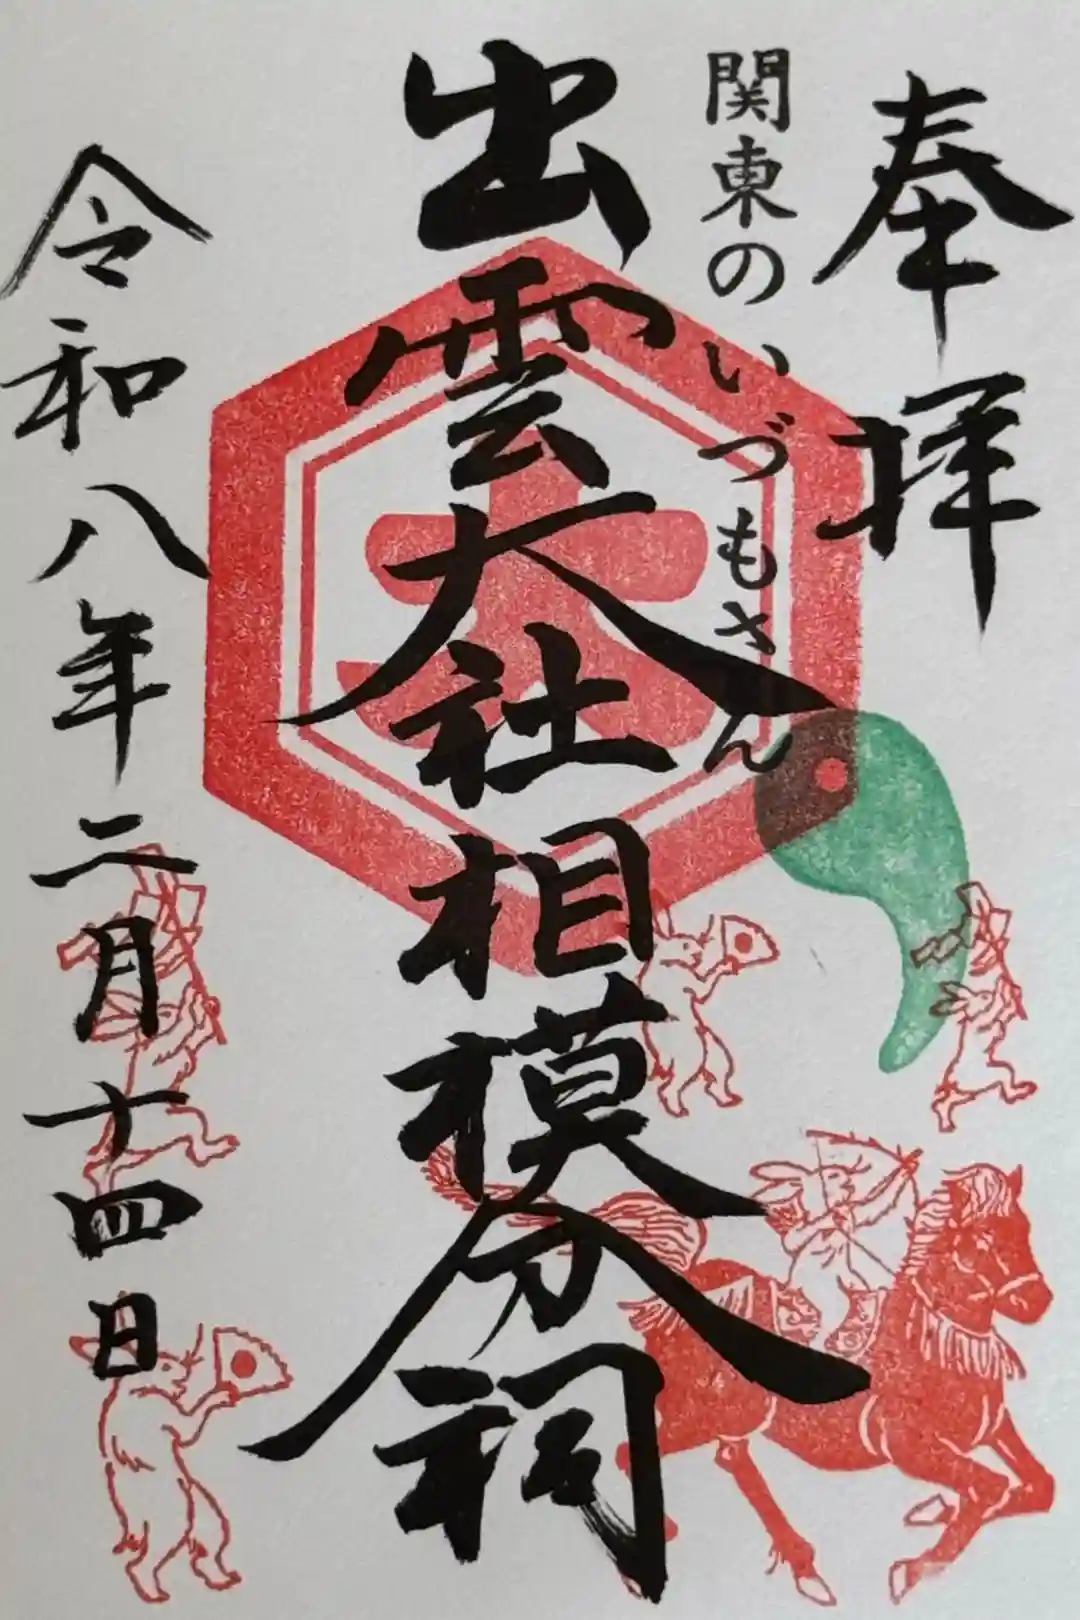 奉拝
関東のいづもさん
出雲大社相模分祠
令和八年二月十四日
大